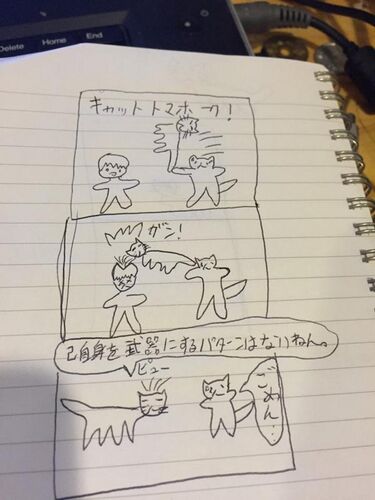 Delete Home End
キャットトマホーク!
ガン!
己自身を武器にするパターンはないねん。
ピュー
ごめん…